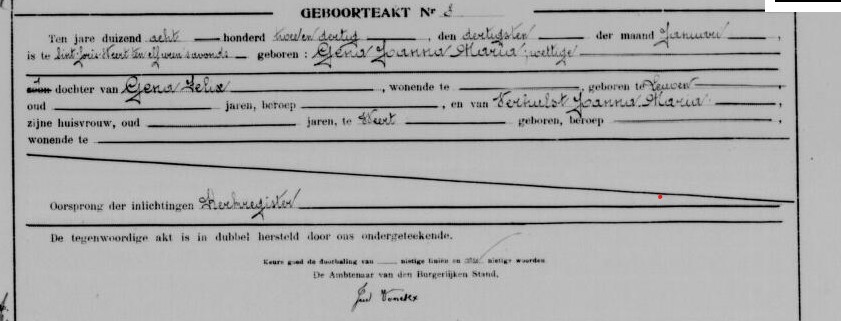 GEBOORTEAKT Nr 3
Ten jare duizend acht honderd twee en dertig, den dertigsten der maand Januari,
is te Sint-Joris-Weert ten elf uren savonds geboren: Gena Joanna Maria, wettige
dochter van Gena Felix, wonende te, geboren te Leuven
oud jaren, beroep, en van Verhulst Joanna Maria,
zijne huisvrouw, oud jaren, te Weert geboren, beroep,
wonende te
Oorsprong der inlichtingen Kerkregister
De tegenwoordige akt is in dubbel hersteld door ons ondergeteekende.
Keure goed de doorhaling van nietige liniën en nietige woorden
De Ambtenaar van den Burgerlijken Stand,